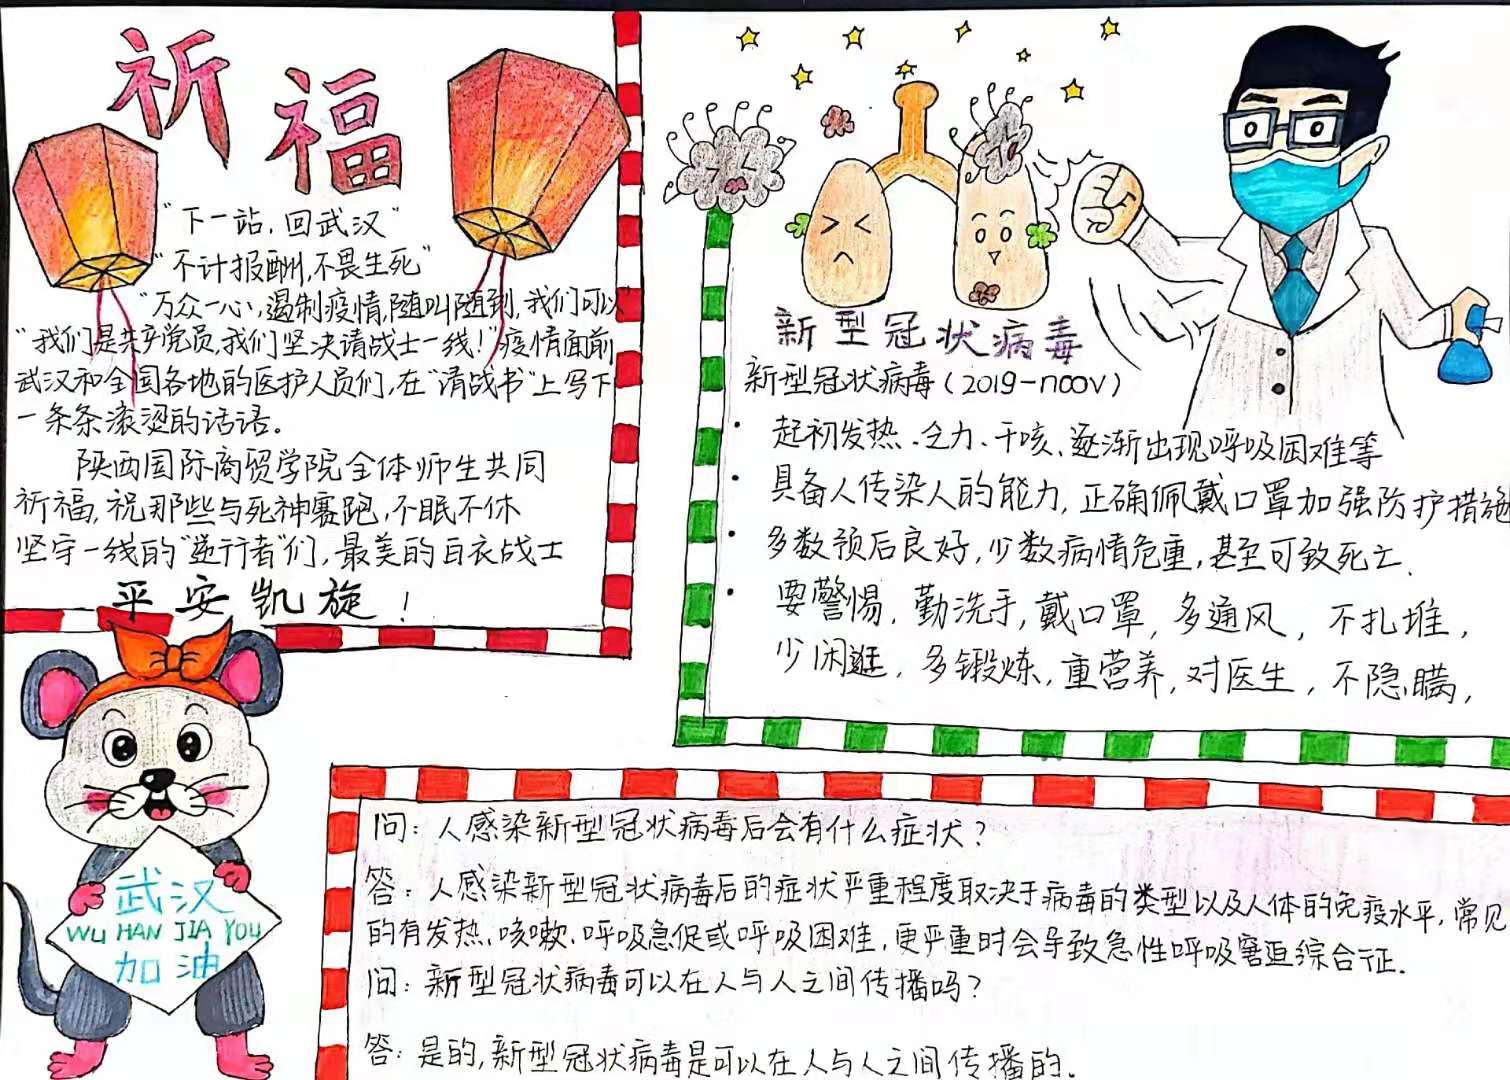 祈福
"下一站,回武汉"
"不计报酬,不畏生死"
"万众一心,遏制疫情,随叫随到,我们可以"
"我们是共产党员,我们坚决请战士一线!"疫情面前
武汉和全国各地的医护人员们,在"请战书"上写下
一条条滚烫的话语。
陕西国际商贸学院全体师生共同
祈福,祝那些与死神赛跑,不眠不休
坚守一线的"逆行者"们,最美的白衣战士
平安凯旋!
武汉
WU HAN JIA YOU
加油
新型冠状病毒
新型冠状病毒(2019-nCoV)
· 起初发热、乏力、干咳、逐渐出现呼吸困难等
· 具备人传染人的能力,正确佩戴口罩加强防护措施
· 多数预后良好,少数病情危重,甚至可致死亡.
· 要警惕,勤洗手,戴口罩,多通风,不扎堆,
少闲逛,多锻炼,重营养,对医生,不隐瞒,
问:人感染新型冠状病毒后会有什么症状?
答:人感染新型冠状病毒后的症状严重程度取决于病毒的类型以及人体的免疫水平,常见
的有发热、咳嗽、呼吸急促或呼吸困难,更严重时会导致急性呼吸窘迫综合征.
问:新型冠状病毒可以在人与人之间传播吗?
答:是的,新型冠状病毒是可以在人与人之间传播的.